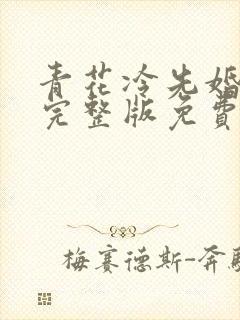 青花冷先婚
完整版免費
梅赛德斯-奔馳